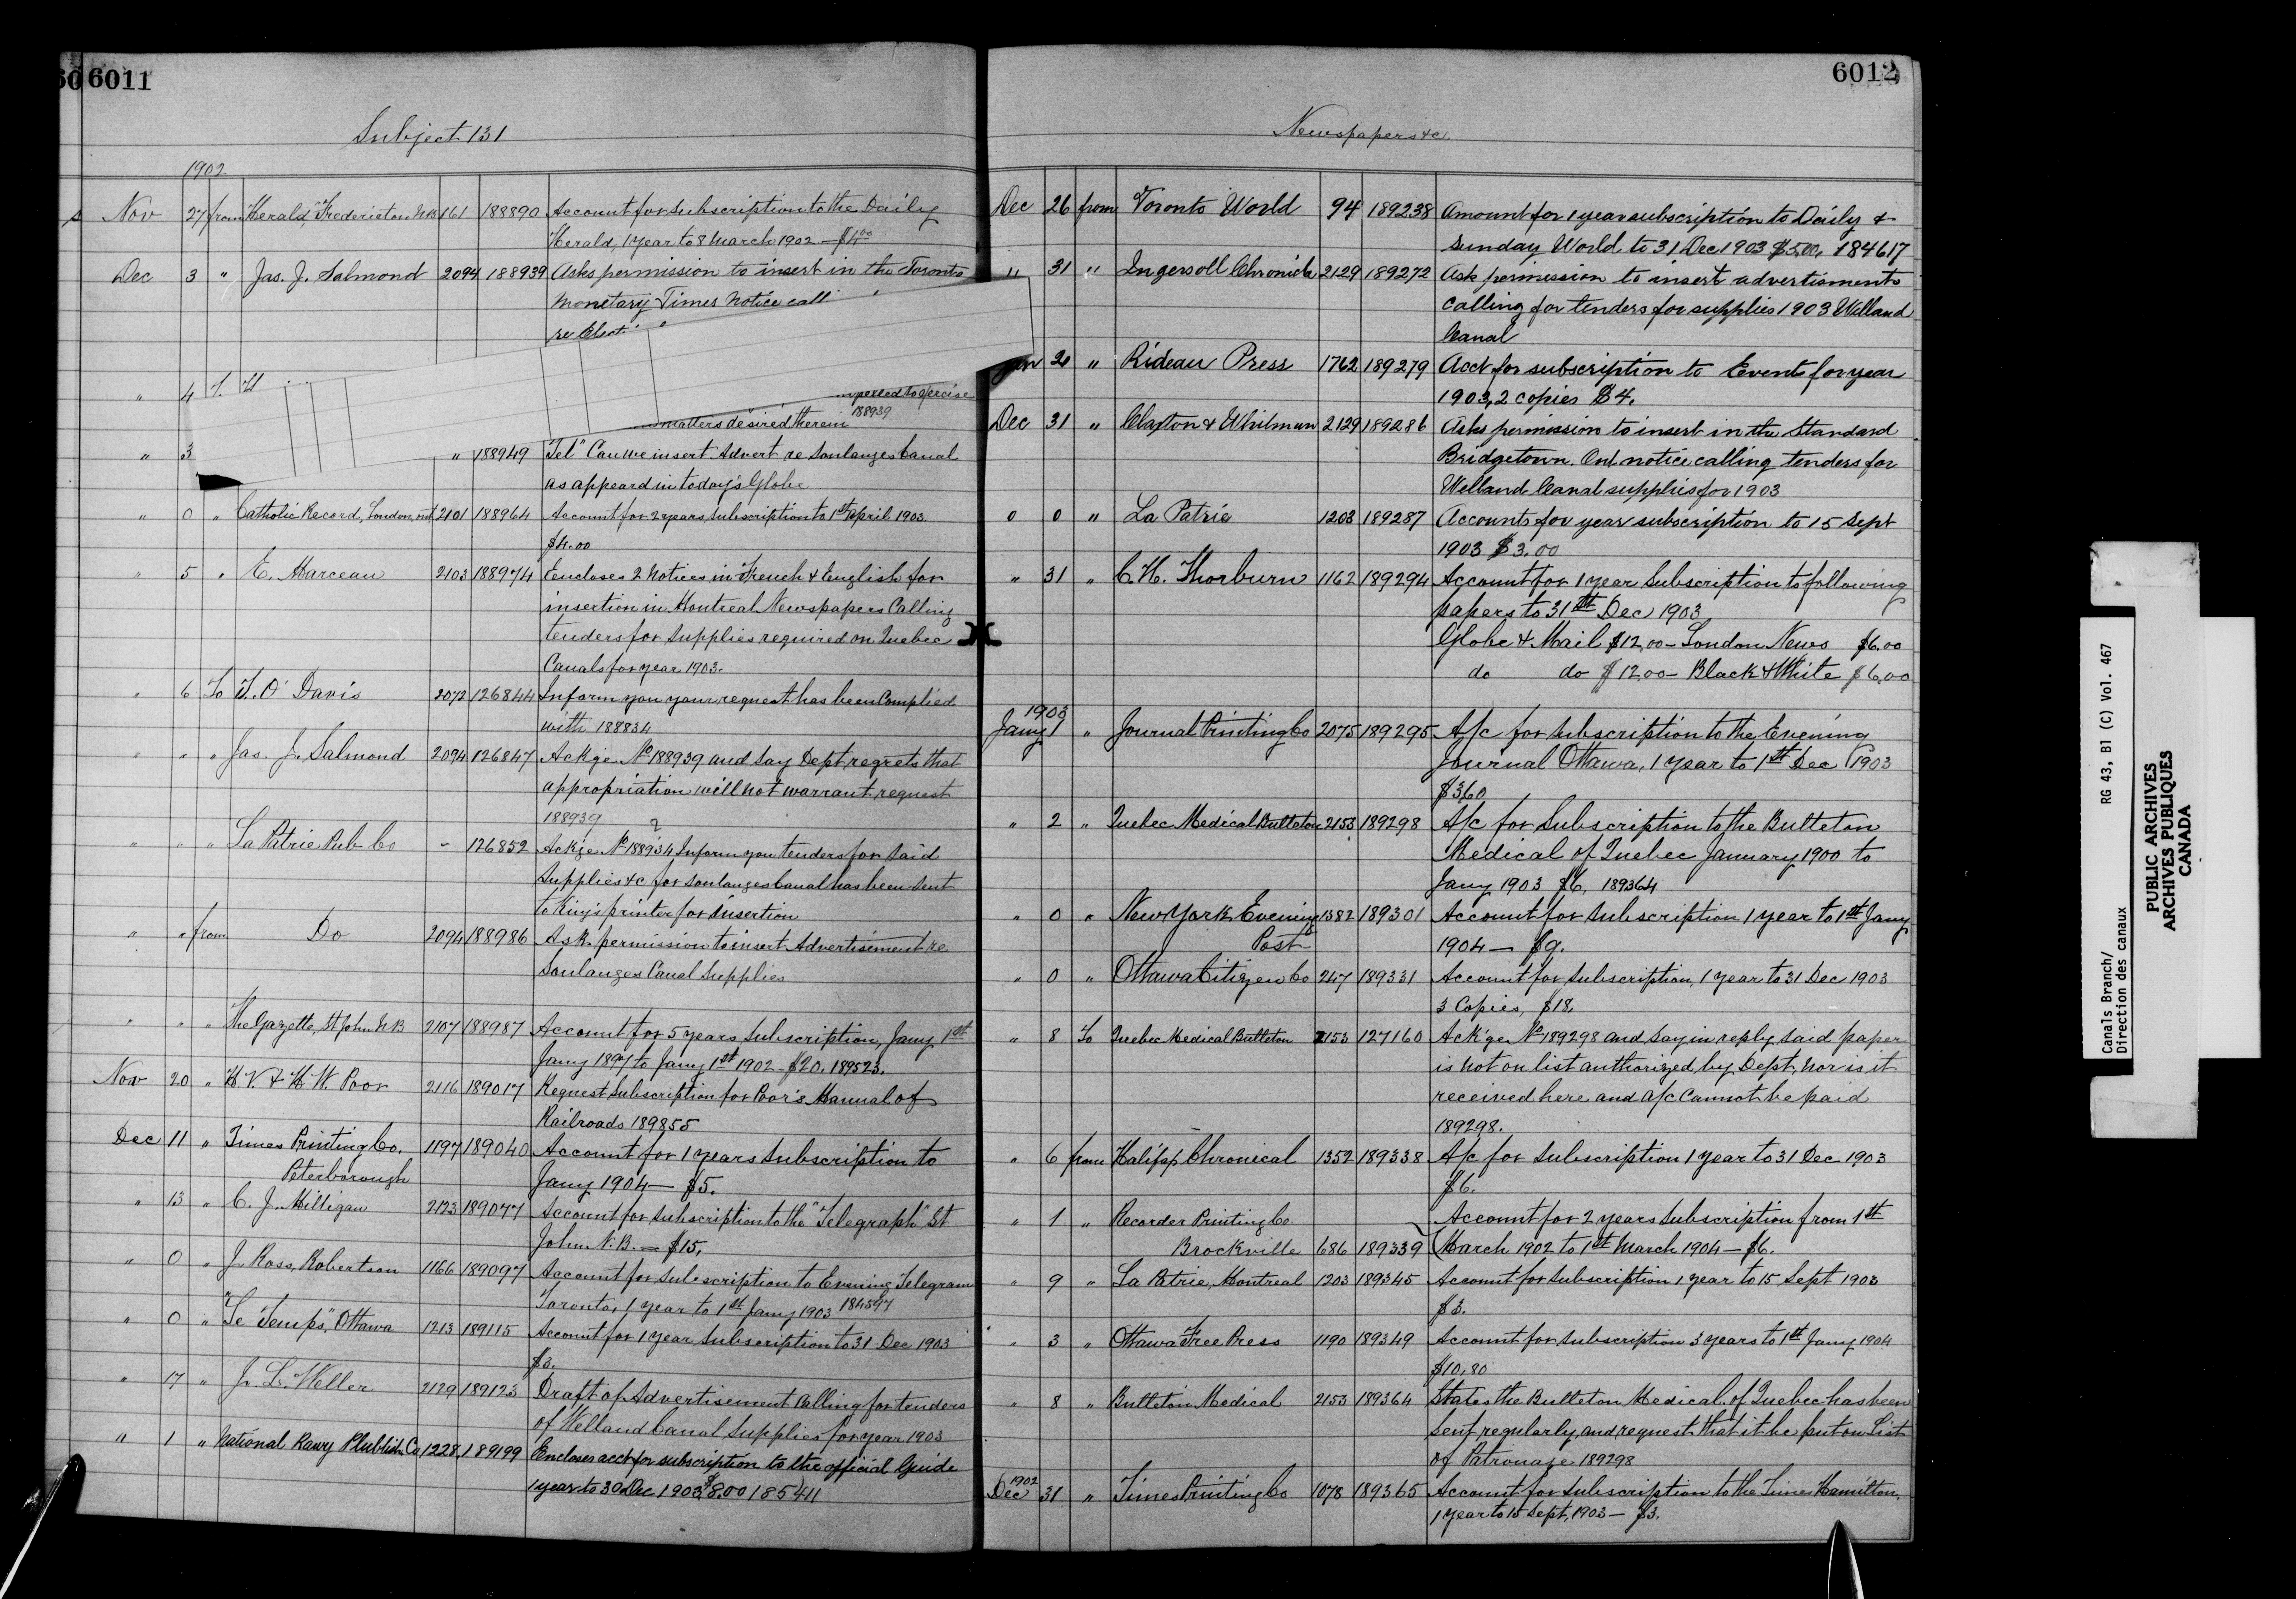 6011
Subject 131
1902
Nov 27 from "Herald," Fredericton N.B 161 188890 Account for Subscription to the Daily
Herald, 1 year to 8 March 1902 — $4.00
Dec 3 " Jas. J. Salmond 2094 188939 Asks permission to insert in the Toronto
Monetary Times Notice call
re Elect
" 4
matters desired therein 188939
" 3 " 188949 "Tel" Can we insert Advert re Soulanges Canal
as appeard in today's Globe
" 0 " Catholic Record, London, Ont 2101 188964 Account for 2 years subscription to 1st April 1903
$4.00
" 5 " E. Marceau 2103 188974 Encloses 2 Notices in French & English for
insertion in Montreal Newspapers Calling
tenders for Supplies required on Quebec
Canals for year 1903.
" 6 To T. O Davis 2072 126844 Inform you your request has been Complied
with 188834
" " " Jas. J. Salmond 2094 126847 Ackge No 188939 and Say Dept. regrets that
appropriation will not warrant request
188939
" " " La Patrie Pub Co - 126852 Ackge No 188934 Inform you tenders for Said
Supplies &c for Soulanges Canal has been Sent
to King's printer for insertion
" " from Do 2094 188986 Ask permission to insert Advertisement re
Soulanges Canal Supplies
" " " The Gazette, St John N.B 2107 188987 Account for 5 years Subscription, Jany 1st
Jany 1897 to Jany 1st 1902 - $20. 189523.
Nov 20 " H. V. & H. W. Poor 2116 189017 Request Subscription for Poor's Manual of
Railroads 189855
Dec 11 " Times Printing Co. 1197 189040 Account for 1 years Subscription to
Peterborough Jany 1904 — $5.
" 13 " C. J. Milligan 2123 189077 Account for Subscription to the "Telegraph" St
John N.B. — $15.
" 0 " J. Ross Robertson 1166 189097 Account for Subscription to Evening Telegram
Toronto, 1 year to 1st Jany 1903 184597
" 0 " "Le Temps", Ottawa 1213 189115 Account for 1 year Subscription to 31 Dec 1903
$3.
" 17 " J. L. Weller 2129 189123 Draft of Advertisement Calling for tenders
of Welland Canal Supplies for year 1903
" 1 " National Rawy Plublish Co 1228 189199 Encloses acct for subscription to the official Guide
1 year to 30 Dec 1903 $8.00 185411
6012
Newspapers &c
Dec 26 from Toronto World 94 189238 Amount for 1 year subscription to Daily &
Sunday World to 31 Dec 1903 $5.00, 184617
" 31 " Ingersoll Chronicle 2129 189272 Ask permission to insert advertisments
calling for tenders for supplies 1903 Welland
Canal
Jan 2 " Rideau Press 1762 189279 Acct for subscription to Events for year
1903, 2 copies $4.
Dec 31 " Claxton & Whitman 2129 189286 Asks permission to insert in the Standard
Bridgetown. Ont notice calling tenders for
Welland Canal supplies for 1903
0 0 " La Patrie 1203 189287 Accounts for year subscription to 15 Sept
1903 $3.00
" 31 " C. H. Thorburn 1162 189294 Account for 1 year Subscription to following
papers to 31st Dec 1903
Globe & Mail $12.00 - London News $6.00
do do $12.00 - Black & White $6.00
1903
Jany 1 " Journal Printing Co 2075 189295 A/c for Subscription to the Evening
Journal Ottawa, 1 year to 1st Dec 1903
$3.60
" 2 " Quebec Medical Bulleton 2153 189298 A/c for Subscription to the Bulleton
Medical of Quebec January 1900 to
Jany 1903 $6. 189364
" 0 " New York Evening 1382 189301 Account for Subscription 1 year to 1st Jany
Post 1904 — $9.
" 0 " Ottawa Citizen Co 247 189331 Account for Subscription, 1 year to 31 Dec 1903
3 Copies, $18.
" 8 To Quebec Medical Bulleton 2153 127160 Ack'ge No 189298 and Say in reply Said paper
is not on list authorized by Dept, nor is it
received here and a/c Cannot be paid
189298.
" 6 from Halifax Chronical 1352 189338 A/c for Subscription 1 year to 31 Dec 1903
$6.
" 1 " Recorder Printing Co Account for 2 years Subscription from 1st
Brockville 686 189339 March 1902 to 1st March 1904 — $6.
" 9 " La Patrie, Montreal 1203 189345 Account for Subscription 1 year to 15 Sept 1903
$3.
" 3 " Ottawa Free Press 1190 189349 Account for Subscription 3 years to 1st Jany 1904
$10.80
" 8 " Bulleton Medical 2153 189364 States the Bulleton Medical of Quebec has been
Sent regularly, and request that it be put on List
of Patronage 189298
1902
Dec 31 " Times Printing Co 1078 189365 Account for Subscription to the Times Hamilton,
1 year to 15 Sept, 1903 — $3.
Canals Branch/ RG 43, B1 (C) Vol. 467
Direction des canaux
PUBLIC ARCHIVES
ARCHIVES PUBLIQUES
CANADA